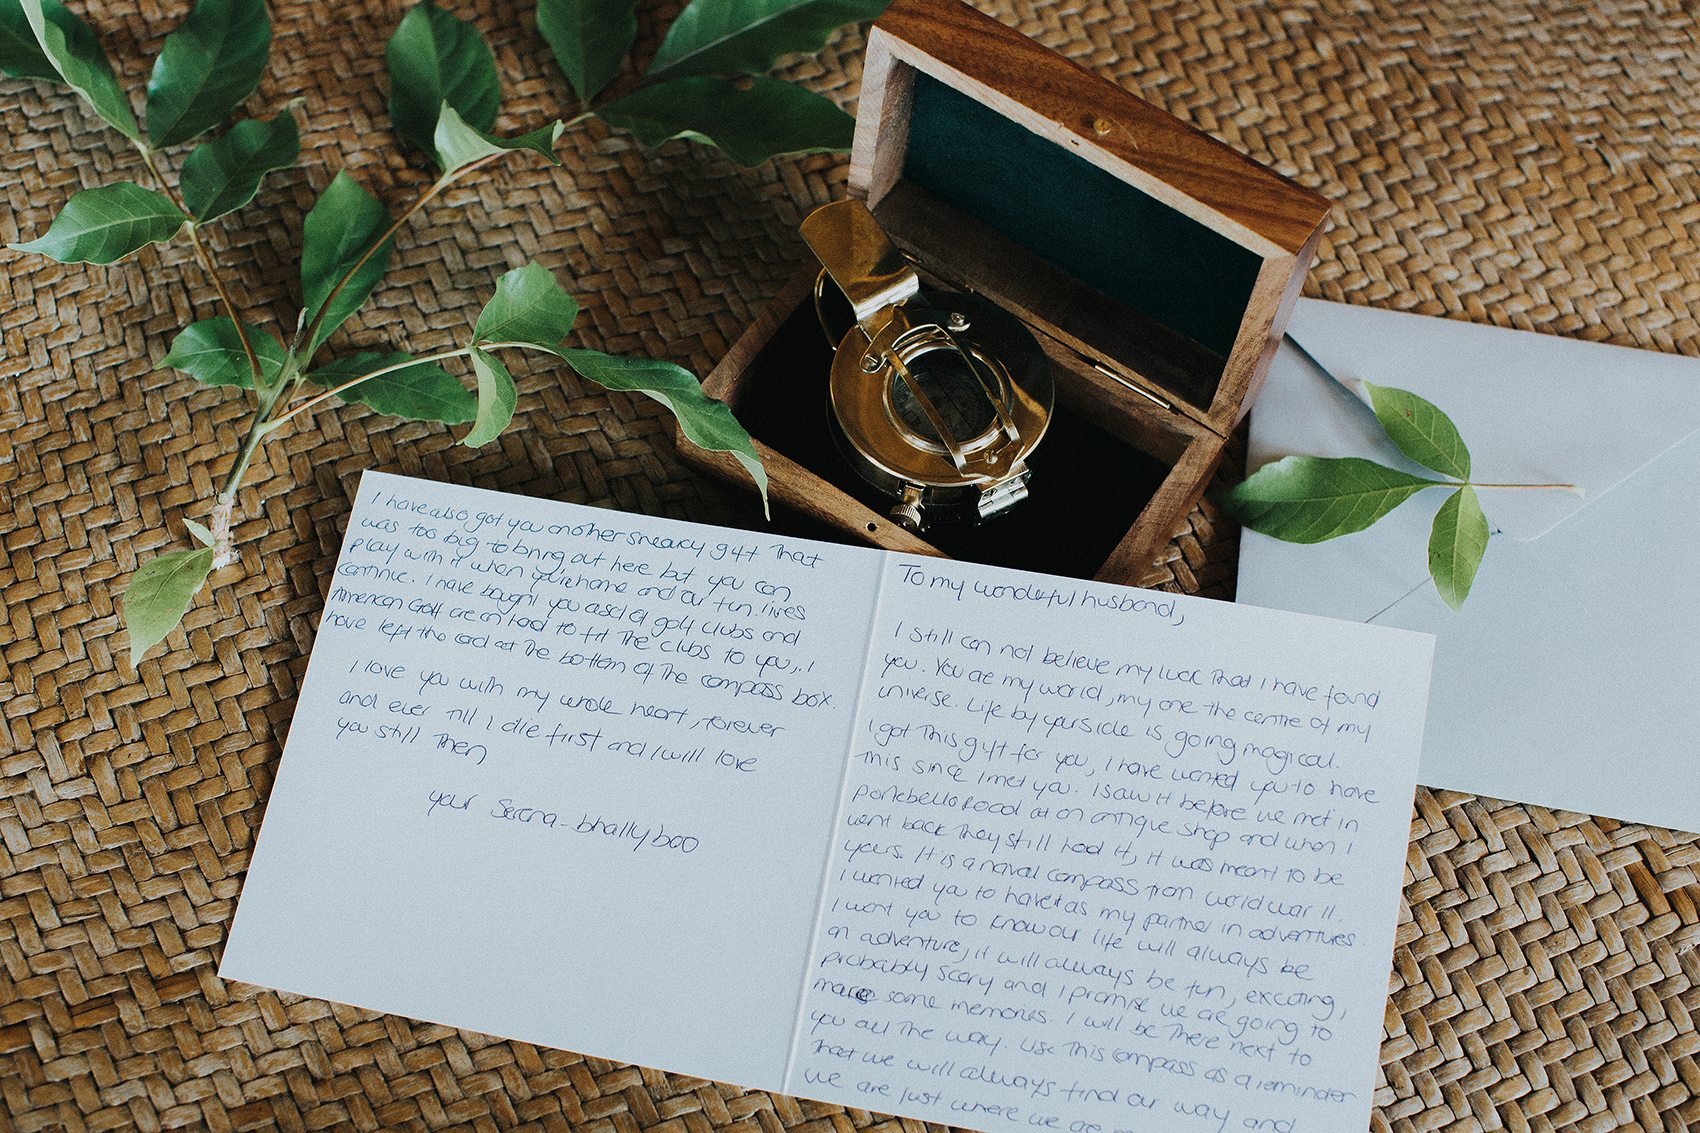 To my wonderful husband,
I still can not believe my luck that I have found
you. You are my world, my one the centre of my
universe. Life by yourside is going magical.
I got this gift for you, I have wanted you to have
this since I met you. I saw it before we met in
portebello Road at an antique shop and when I
went back they still had it, it was meant to be
yours. It is a naval compass from world war II.
I wanted you to have it as my partner in adventures
I want you to know our life will always be
an adventure, it will always be fun, exciting,
probably scary and I promise we are going to
make some memories. I will be there next to
you all the way. Use this compass as a reminder
that we will always find our way and
we are just where we are
I have also got you another sneaky gift that
was too big to bring out here but you can
play with it when you're home and our fun lives
continue. I have bought you a set of golf clubs and
American Golf are on hand to fit the clubs to you, I
have left the card at the bottom of the compass box.
I love you with my whole heart, forever
and ever till I die first and I will love
you still then
your Serena-bhally boo